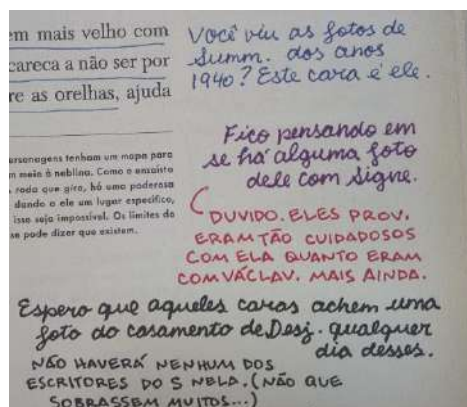 em mais velho com
careca a não ser por
re as orelhas, ajuda
Você viu as fotos de
Summ. dos anos
1940? Este cara é ele.
ersonagens tenham um mapa para
m meio à neblina. Como o ensaísta
roda que gira, há uma poderosa
dando a ele um lugar específico,
isso seja impossível. Os limites do
se pode dizer que existem.
Fico pensando em
se há alguma foto
dele com Signe.
DUVIDO. ELES PROV.
ERAM TÃO CUIDADOSOS
COM ELA QUANTO ERAM
COM VÁCLAV. MAIS AINDA.
Espero que aqueles caras achem uma
foto do casamento de Desj. qualquer
dia desses.
NÃO HAVERÁ NENHUM DOS
ESCRITORES DO S NELA. (NÃO QUE
SOBRASSEM MUITOS...)